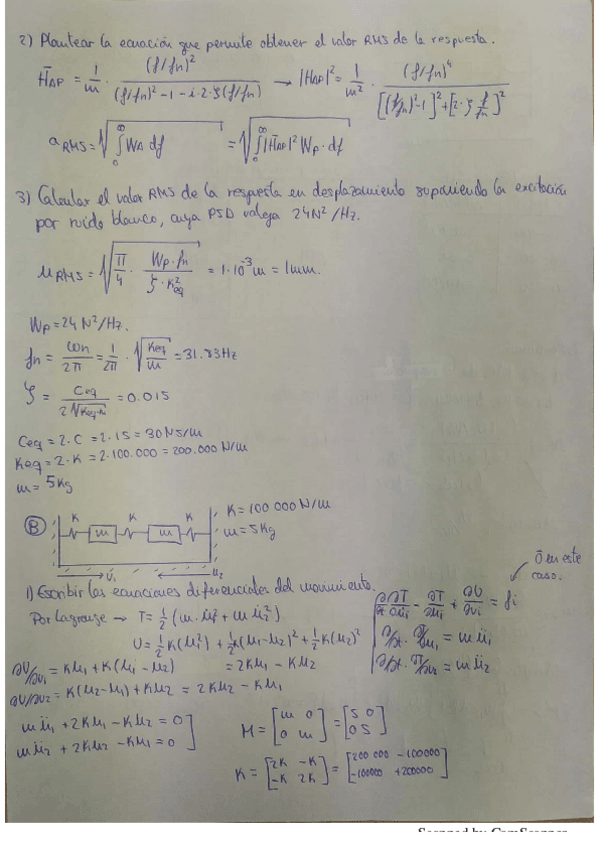 2) Plantear la ecuación que permite obtener el valor RMS de la respuesta.
H̄AP = 1/m · (f/fn)² / ((f/fn)² - 1 - i·2·ζ(f/fn)) → |HAP|² = 1/m² · (f/fn)⁴ / ([(f/fn)² - 1]² + [2·ζ f/fn]²)
aRMS = √(∫₀^∞ WA df) = √(∫₀^∞ |H̄AP|² WP · df)
3) Calcular el valor RMS de la respuesta en desplazamiento suponiendo la excitación
por ruido blanco, cuya PSD valega 24N²/Hz.
uRMS = √(π/4 · WP·fn / (ζ·Keq²)) = 1·10⁻³ m = 1mm.
WP = 24 N²/Hz.
fn = ωn/2π = 1/2π · √(Keq/m) = 31.83Hz
ζ = Ceq / (2√(Keq·m)) = 0.015
Ceq = 2·C = 2·15 = 30 NS/m
Keq = 2·K = 2·100.000 = 200.000 N/m
m = 5Kg
B K m K m K K = 100 000 N/m
m = 5Kg
U1 U2
1) Escribir las ecuaciones diferenciales del movimiento.
Ō en este
caso.
Por Lagrange → T = ½ (m·u̇1² + m u̇2²)
∂/∂t ∂T/∂u̇i - ∂T/∂ui + ∂U/∂ui = fi
U = ½ K(u1²) + ½K(u1-u2)² + ½K(u2)²
∂/∂t · ∂T/∂u1 = m ü1
∂/∂t · ∂T/∂u2 = m ü2
∂U/∂u1 = Ku1 + K(u1 - u2) = 2Ku1 - Ku2
∂U/∂u2 = K(u2-u1) + Ku2 = 2Ku2 - Ku1
mü1 + 2Ku1 - Ku2 = 0
mü2 + 2Ku2 - Ku1 = 0
M = [m 0; 0 m] = [5 0; 0 5]
K = [2K -K; -K 2K] = [200 000 -100000; -100000 +200000]
Scanned by CamScanner